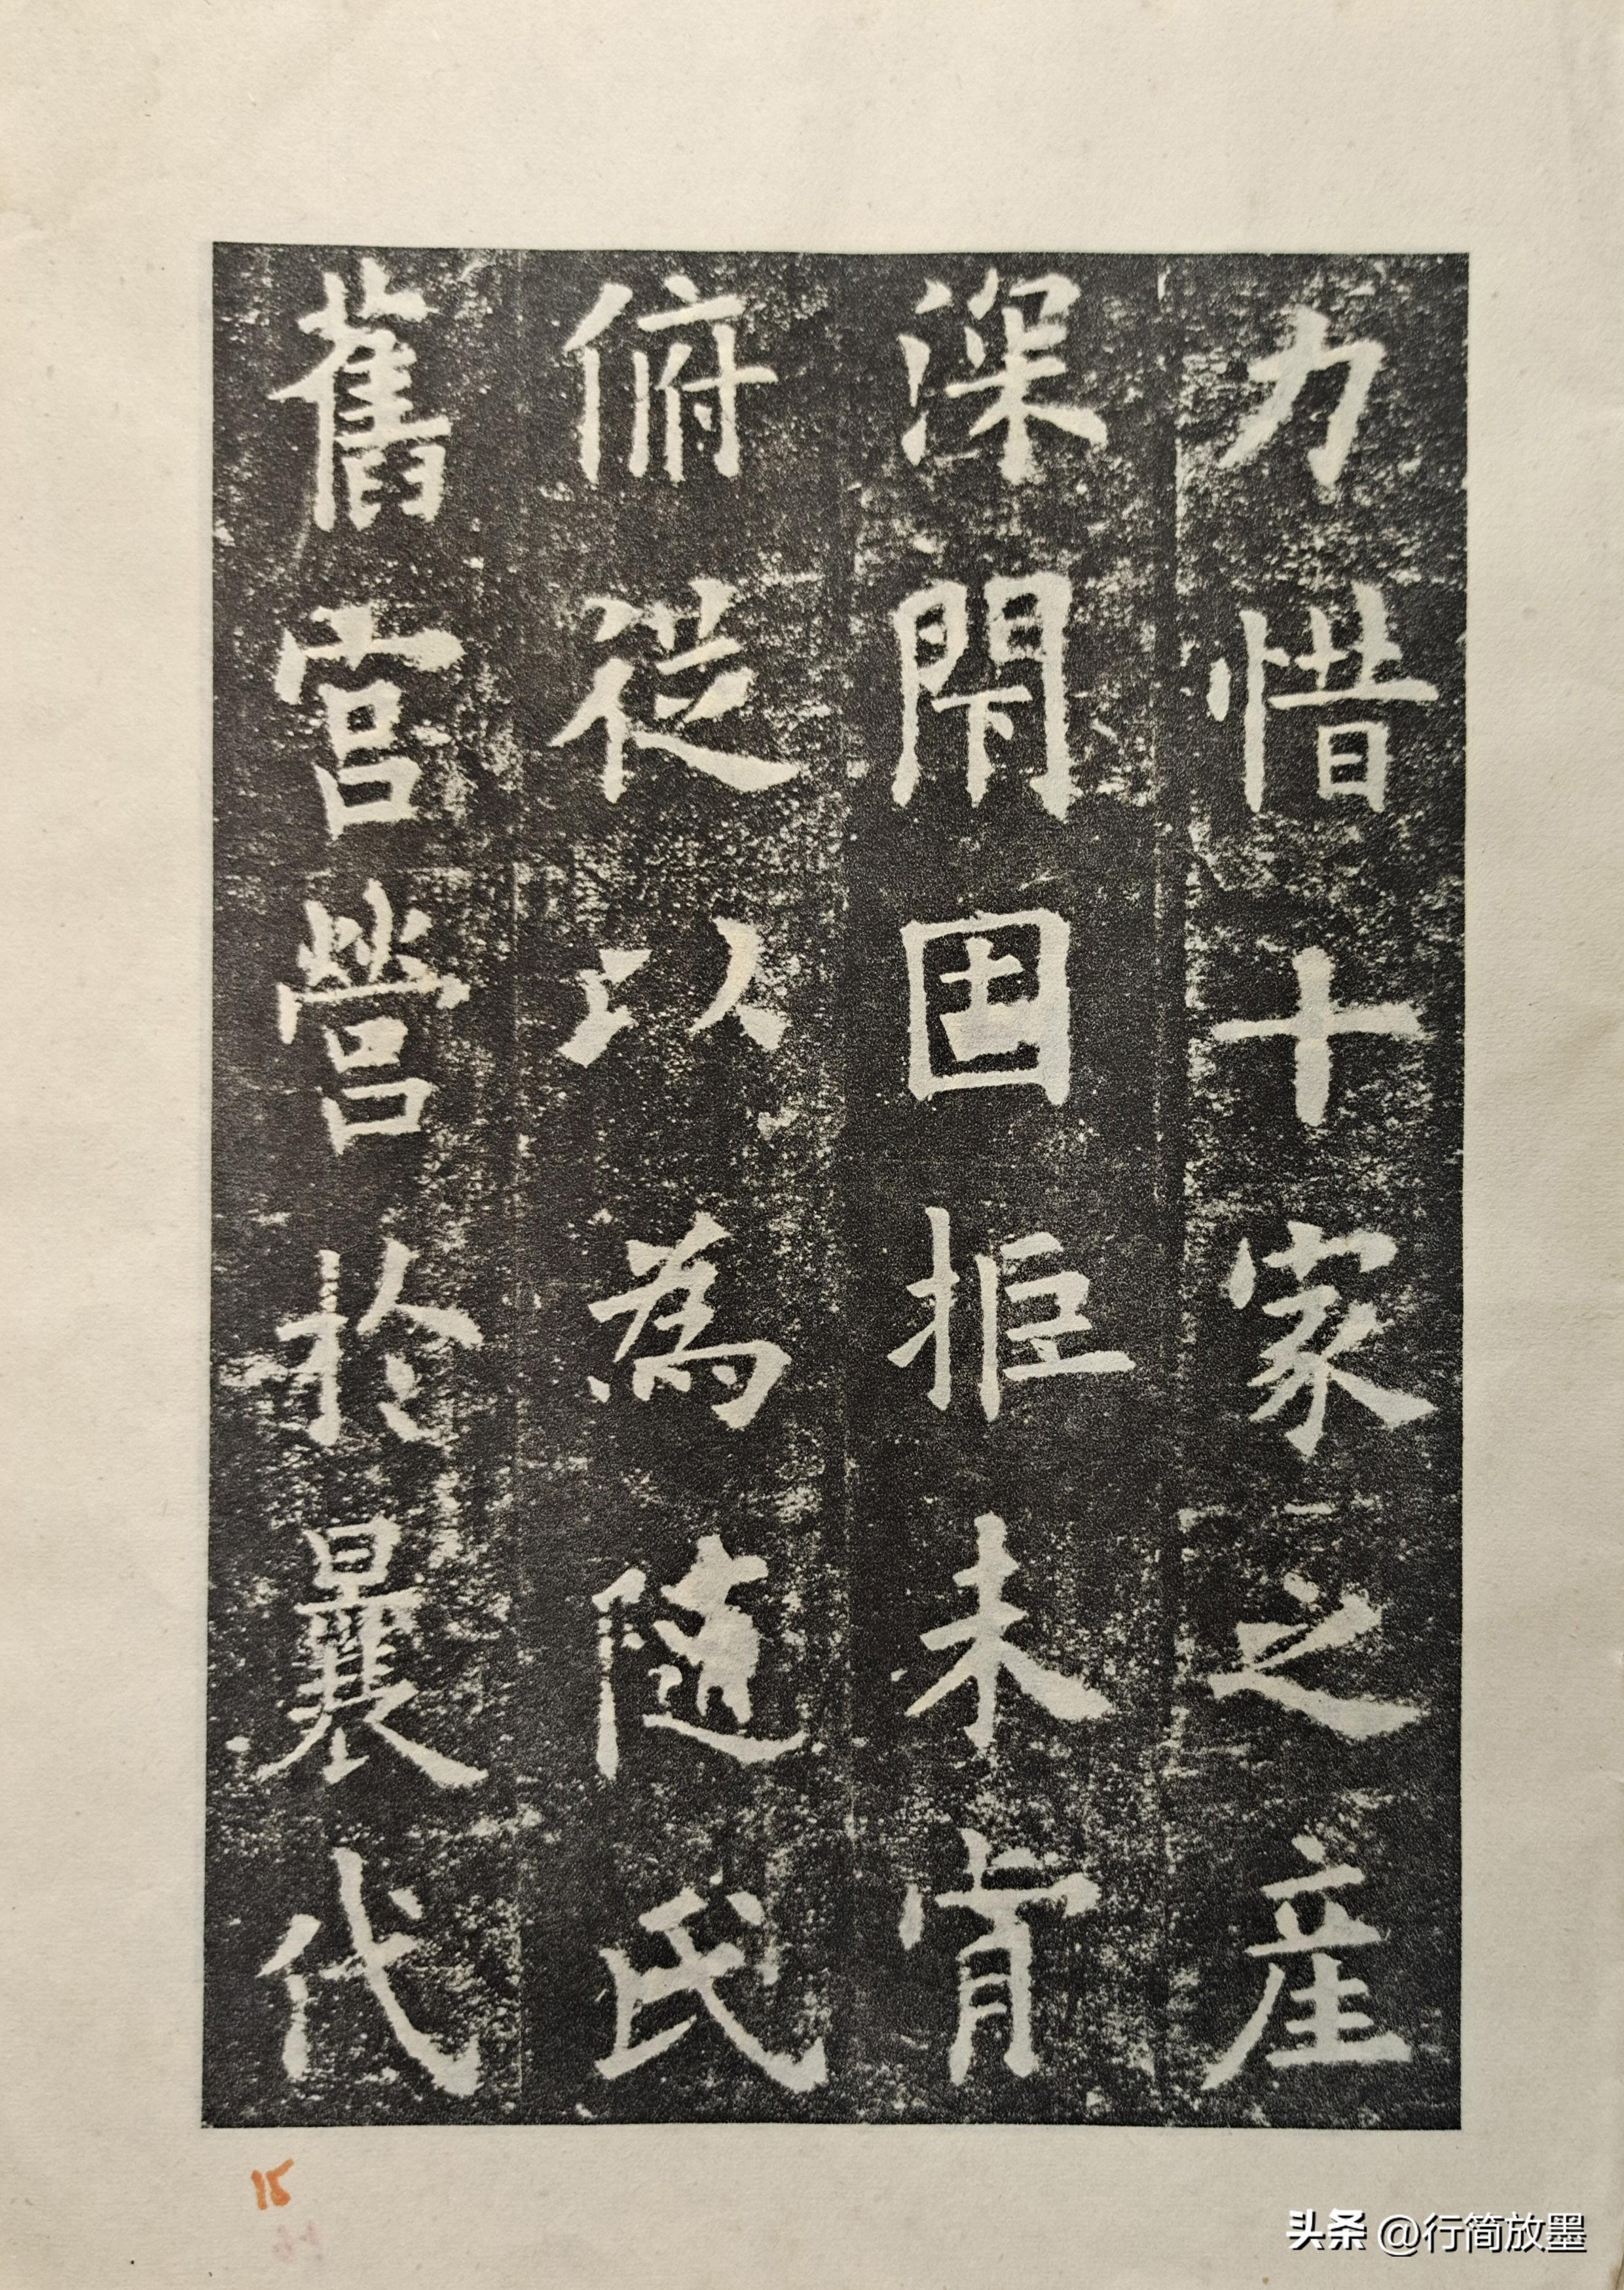 力惜十家之產
深閇固拒未肯
俯從以為隨氏
舊宮營於曩代
15
头条 @行简放墨